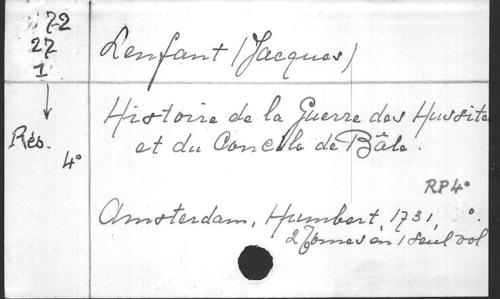 72
27
1
Rés.
4°
Lenfant (Jacques)
Histoire de la Guerre des Hussite
et du Concile de Bâle.
RP4°
Amsterdam, Humbert, 1731, °.
2 Tomes en 1 seul vol